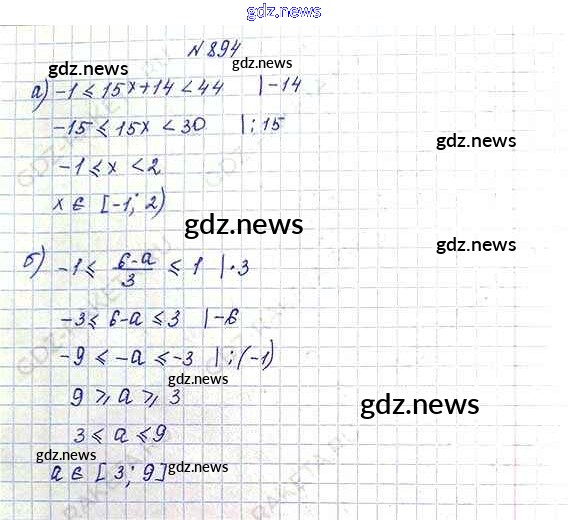 gdz.news
N 894
gdz.news gdz.news
а) -1 ≤ 15x+14 < 44 | -14
-15 ≤ 15x < 30 | : 15
gdz.news
-1 ≤ x < 2
x ∈ [-1; 2)
gdz.news
gdz.news
б) -1 ≤ (6-a)/3 ≤ 1 | · 3
-3 ≤ 6-a ≤ 3 | -6
-9 ≤ -a ≤ -3 | : (-1)
gdz.news
9 ≥ a ≥ 3
gdz.news
3 ≤ a ≤ 9
gdz.news
a ∈ [3; 9]
gdz.news